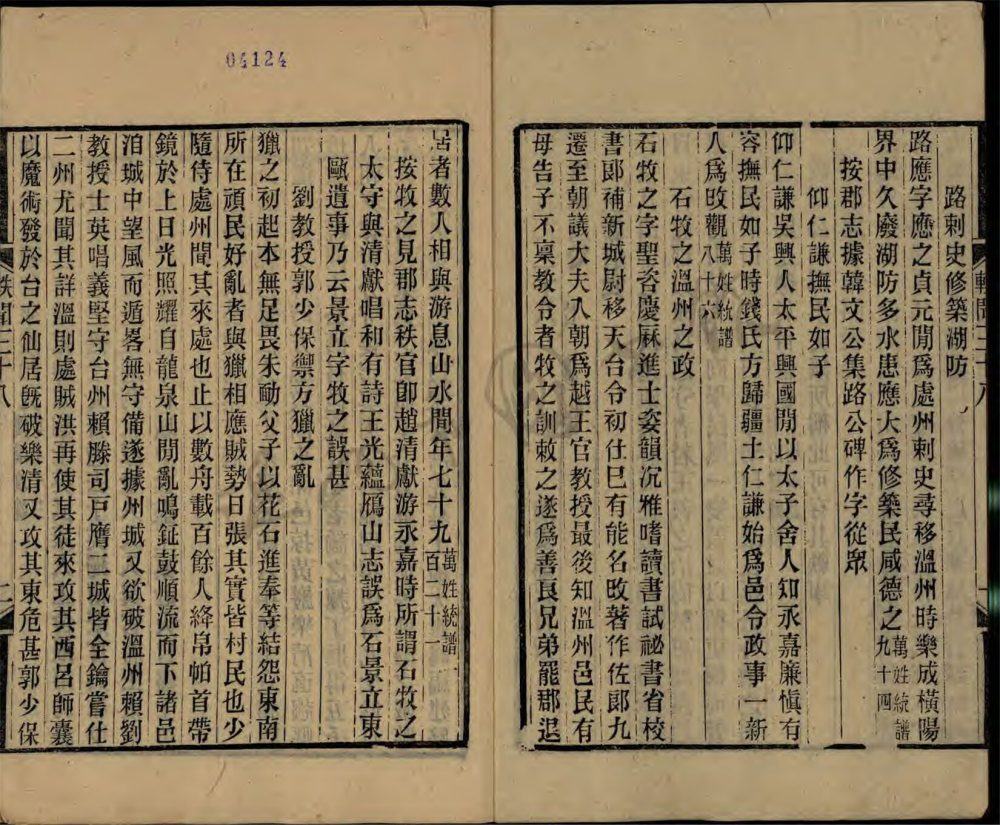 04124
路刺史修築湖防
路應字應之貞元閒爲處州刺史尋移溫州時樂成橫陽
界中久廢湖防多水患應大爲修築民咸德之萬姓統譜九十四
按郡志據韓文公集路公碑作字從眾
仰仁謙撫民如子
仰仁謙吳興人太平興國閒以太子舍人知永嘉廉愼有
容撫民如子時錢氏方歸疆土仁謙始爲邑令政事一新
人爲改觀萬姓統譜八十六
石牧之溫州之政
石牧之字聖咨慶厤進士姿韻沉雅嗜讀書試祕書省校
書郎補新城尉移天台令初仕巳有能名改著作佐郎九
遷至朝議大夫入朝爲越王官教授最後知溫州邑民有
母告子不稟教令者牧之訓敕之遂爲善良兄弟罷郡退
居者數人相與游息山水間年七十九萬姓統譜一百二十一
按牧之見郡志秩官卽趙清獻游永嘉時所謂石牧之
太守與清獻唱和有詩王光蘊鴈山志誤爲石景立東
甌遺事乃云景立字牧之誤甚
劉教授郭少保禦方獵之亂
獵之初起本無足畏朱勔父子以花石進奉等結怨東南
所在頑民好亂者與獵相應賊勢日張其實皆村民也少
隨侍處州聞其來處也止以數舟載百餘人絳帛帕首帶
鏡於上日光照耀自龍泉山閒亂鳴鉦鼓順流而下諸邑
洎城中望風而遁畧無守備遂據州城又欲破溫州賴劉
教授士英唱義堅守台州賴滕司戶膺二城皆全鑰嘗仕
二州尤聞其詳溫則處賊洪再使其徒來攻其西呂師囊
以魔術發於台之仙居旣破樂清又攻其東危甚郭少保
軼聞三十八
二